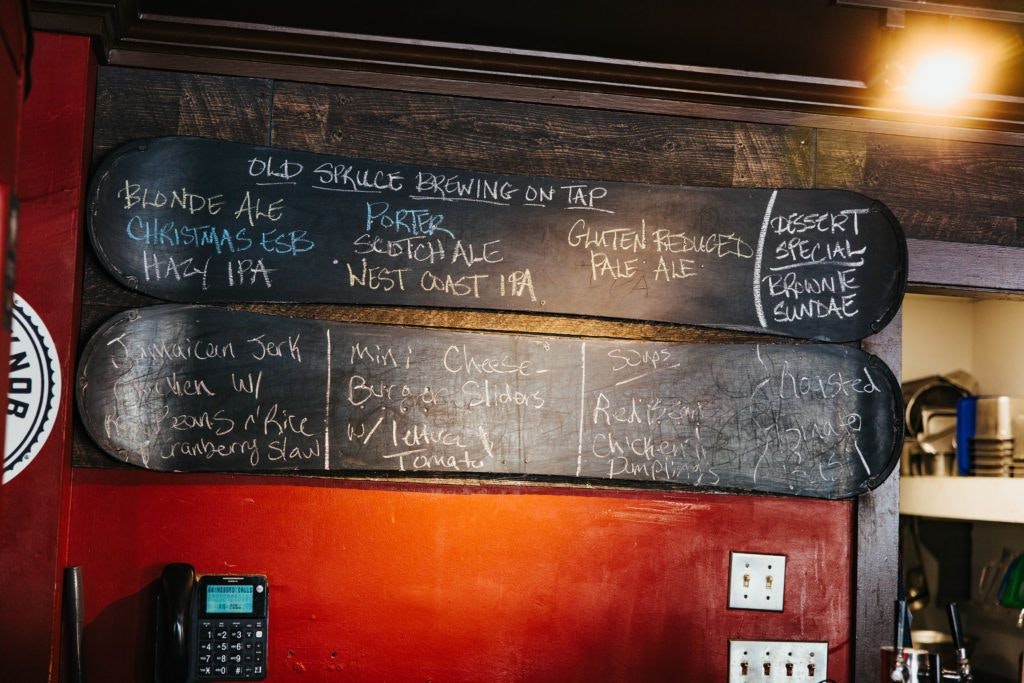 OLD SPRUCE BREWING ON TAP
BLONDE ALE
CHRISTMAS ESB
HAZY IPA
PORTER
SCOTCH ALE
WEST COAST IPA
GLUTEN REDUCED
PALE ALE
DESSERT
SPECIAL
BROWNIE
SUNDAE
Jamaican Jerk
Chicken W/
Beans n' Rice
Cranberry Slaw
Mini Cheese-
Burger Sliders
w/ Lettuce
Tomato
Soups
Red Bean
Chicken
Dumplings
Roasted